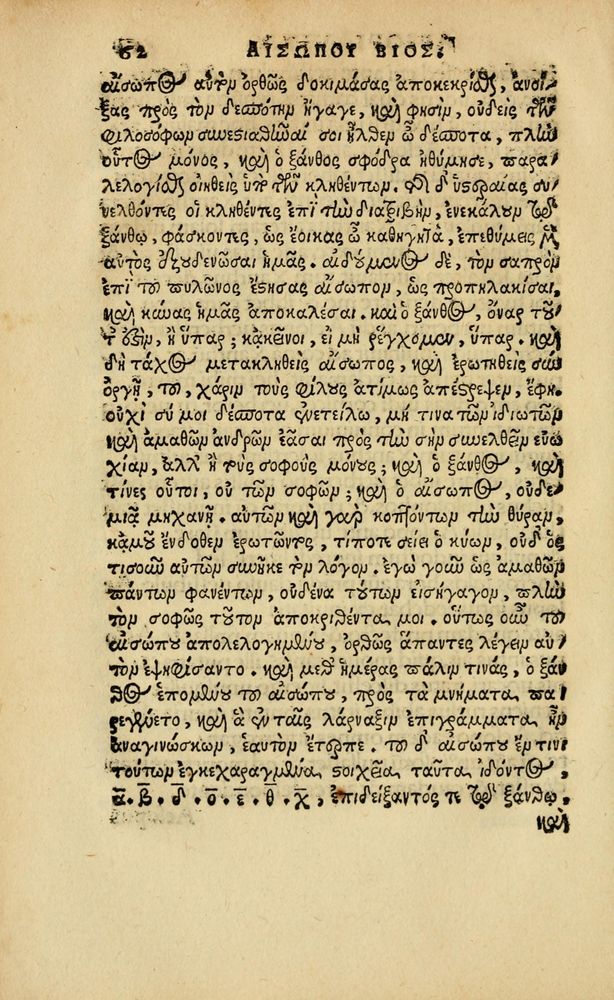 62 ΑΙΣΩΠΟΥ ΒΙΟΣ.
αἴσωπος αὐτὸν ὀρθῶς δοκιμάσας ἀποκεκρίσθαι, ἀνοί
ξας πρὸς τὸν δεσπότην ἤγαγε, καὶ φησὶν, οὐδεὶς τῶν
φιλοσόφων συνεστιαθῆναί σοι ἦλθεν ὦ δέσποτα, πλὴν
οὗτος μόνος, καὶ ὁ ξάνθος σφόδρα ἠθύμησε, παρα
λελογίσθαι οἰηθεὶς ὑπὸ τῶν κληθέντων. τῇ δ' ὑστεραίας συ
νελθόντες οἱ κληθέντες ἐπὶ τὴν διατριβὴν, ἐνεκάλουν τῷ
ξάνθῳ, φάσκοντες, ὡς ἔοικας ὦ καθηγητὰ, ἐπεθύμεις μὲν
αὐτὸς ἐξουδενῶσαι ἡμᾶς. αἰδούμενος δὲ, τὸν σαπρὸν
ἐπὶ τοῦ πυλῶνος ἔστησας αἴσωπον, ὡς προπηλακίσαι,
καὶ κύνας ἡμᾶς ἀποκαλέσαι. καὶ ὁ ξάνθος, ὄναρ τοῦ
τ' ἐστὶν, ἢ ὕπαρ; κἀκεῖνοι, εἰ μὴ ῥέγχομεν, ὕπαρ. καὶ
δὴ τάχος μετακληθεὶς αἴσωπος, καὶ ἐρωτηθεὶς σὺν
ὀργῇ, τοῦ χάριν τοὺς φίλους ἀτίμως ἀπέστρεψεν, ἔφη.
οὐχὶ σύ μοι δέσποτα ἐνετείλω, μή τινα τῶν ἰδιωτῶν
καὶ ἀμαθῶν ἀνδρῶν ἐᾶσαι πρὸς τὴν σὴν συνελθεῖν εὐω
χίαν, ἀλλ' ἢ τοὺς σοφοὺς μόνους; καὶ ὁ ξάνθος, καὶ
τίνες οὗτοι, οὐ τῶν σοφῶν; καὶ ὁ αἴσωπος, οὐδε
μιᾷ μηχανῇ. αὐτῶν καὶ γὰρ κοπτόντων τὴν θύραν,
κἀμοῦ ἔνδοθεν ἐρωτῶντος, τί ποτε σείει ὁ κύων, οὐδ' ὅς
τισοῦν αὐτῶν συνῆκε τὸν λόγον. ἐγὼ γοῦν ὡς ἀμαθῶν
πάντων φανέντων, οὐδένα τούτων εἰσήγαγον, πλὴν
τὸν σοφῶς τοῦτον ἀποκριθέντα μοι. οὕτως οὖν τοῦ
αἰσώπου ἀπολελογημένου, ὀρθῶς ἅπαντες λέγειν αὐ
τὸν ἐψηφίσαντο. καὶ μεθ' ἡμέρας πάλιν τινάς, ὁ ξάν
θος ἑπομένου τοῦ αἰσώπου, πρὸς τὰ μνήματα πα
ρεγένετο, καὶ ἃ ἐν ταῖς λάρναξιν ἐπιγράμματα ἦν
ἀναγινώσκων, ἑαυτὸν ἔτερπε. τοῦ δ' αἰσώπου ἔν τινι
τούτων ἐγκεχαραγμένα στοιχεῖα ταῦτα ἰδόντος,
α. β. δ. ο. ε. θ. χ, ἐπιδείξαντός τε τῷ ξάνθῳ,
καὶ